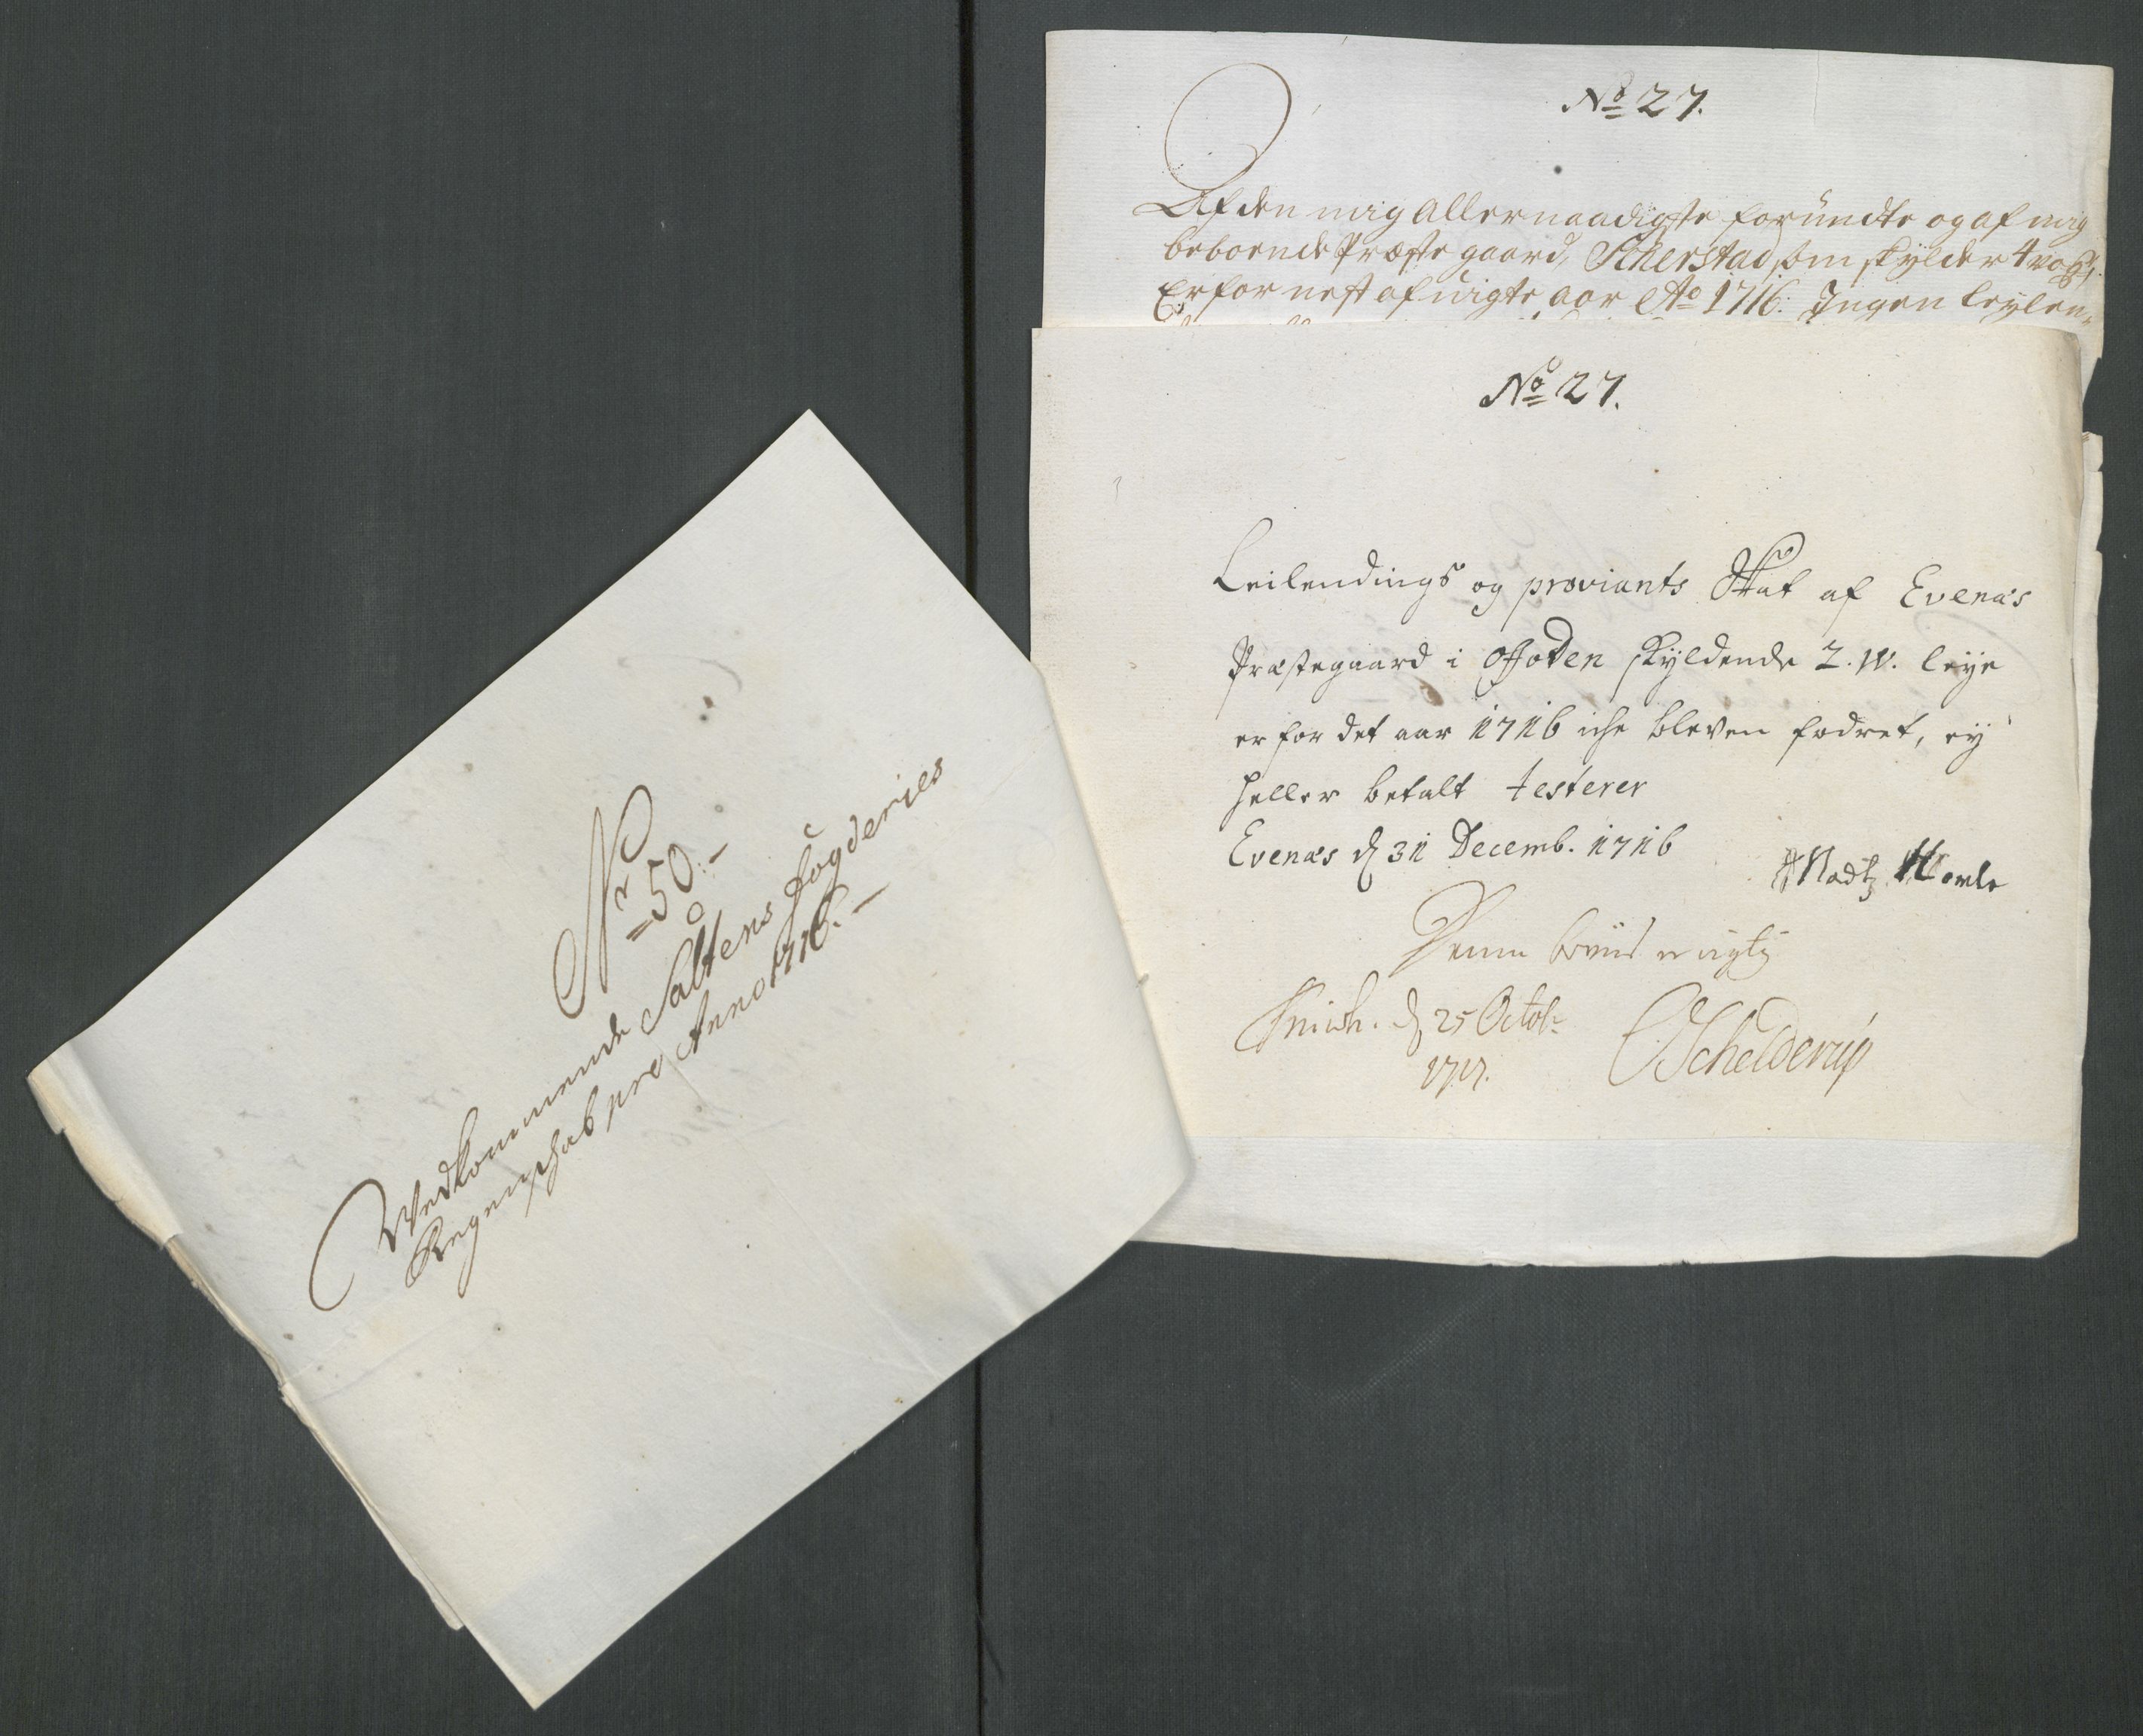 No 27.
Af den mig Allernaadigste forundte og af mig
beboende Præste gaard, Scherstad som skylder 4 vog
Er for nest afvigte aar Ao 1716: Ingen leylen-
No 27.
Leilendings og proviants Skat af Evenæs
Præstegaard i Ofoden skyldende 2. W. leye
er for det aar 1716 iche bleven fodret, ey
heller betalt testerer
Evenæs d 31 Decemb. 1716
Madtz
Denne beviis er rigtig
d 25 Octobr
1717.
Schelderup
Nr 50.-
Vedkommende Saltens fogderies
Regenschab pro Anno 1716.-